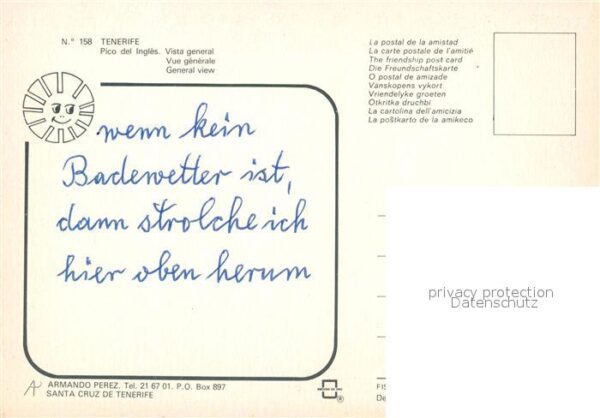 N.º 158 TENERIFE
Pico del Inglés. Vista general
Vue générale
General view
La postal de la amistad
La carte postale de l'amitié
The friendship post card
Die Freundschaftskarte
O postal de amizade
Vanskopens vykort
Vriendelyke groeten
Otkritka druchbi
La cartolina dell'amicizia
La poŝtkarto de la amikeco
wenn kein
Badewetter ist,
dann strolche ich
hier oben herum
privacy protection
Datenschutz
ARMANDO PEREZ. Tel. 21 67 01. P.O. Box 897
SANTA CRUZ DE TENERIFE
®
FIS
De